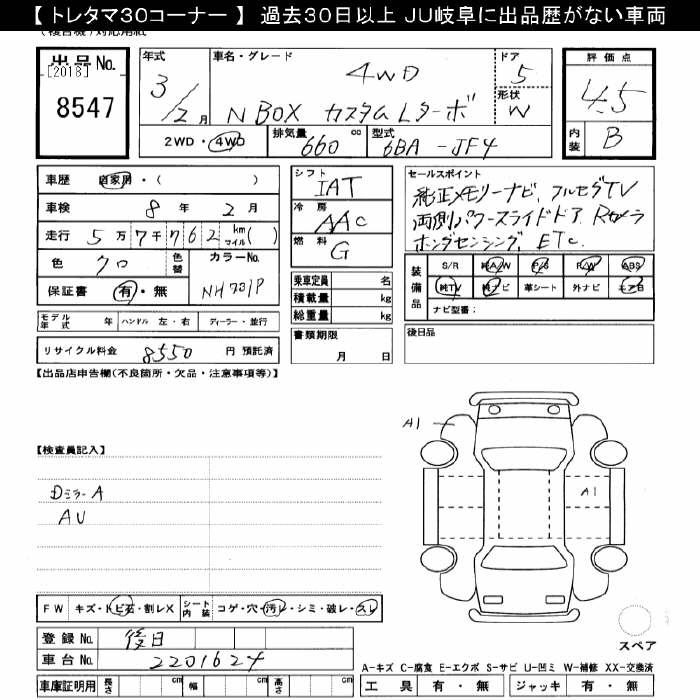 【 トレタマ30コーナー 】 過去30日以上 JU岐阜に出品歴がない車両
出品No.
[2018]
8547
年式
3/2月
車名・グレード
4WD
N BOX カスタム Lターボ
ドア
5
形状
W
2WD・4WD
排気量
660 cc
型式
6BA-JF4
評価点
4.5
内装
B
車歴 自家用・( )
車検 8年 2月
走行 5万7千762 km マイル( )
色 クロ 色替 カラーNo.
保証書 有・無 NH731P
モデル年式 年 ハンドル 左・右 ディーラー・並行
リサイクル料金 8550 円 預託済
シフト
IAT
冷房
AAC
燃料
G
乗車定員 名
積載量 kg
総重量 kg
書類期限
月 日
セールスポイント
純正メモリーナビ、フルセグTV
両側パワースライドドア、Rカメラ
ホンダセンシング、ETC.
装備品
S/R 純A/W P/S P/W ABS
純TV 純ナビ 革シート 外ナビ エアB
ナビ型番:
後日品
【出品店申告欄(不良箇所・欠品・注意事項等)】
【検査員記入】
Dミラー A
AU
A1
A1
FW キズ・トビ石・割レX シート内装 コゲ・穴・汚レ・シミ・破レ・スレ
登録No. 後日
車台No. 2201624
車庫証明用 長さ cm 幅 cm 高さ cm
スペア
A-キズ C-腐食 E-エクボ S-サビ U-凹ミ W-補修 XX-交換済
工具 有・無 ジャッキ 有・無